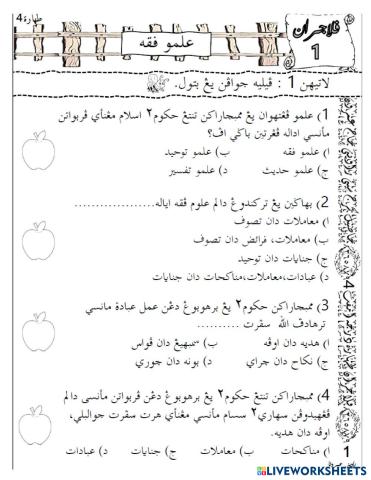 طهارة 4
ڤلاجرن
1
علمو فقه
لاتيهن 1 : ڤيليه جواڤن يڠ بتول.
1) علمو ڤڠتهوان يڠ ممبچاراكن تنتڠ حكوم٢ اسلام مڠناٴي ڤربواتن
مأنسي اداله ڤڠرتين باݢي اڤ؟
ا) علمو فقه
ب) علمو توحيد
ج) علمو حديث
د) علمو تفسير
2) بهاݢين يڠ تركندوڠ دالم علوم فقه اياله..................
ا) معاملات دان تصوف
ب) معاملات، فرائض دان تصوف
ج) جنايات دان توحيد
د) عبادات،معاملات،مناكحات دان جنايات
3) ممبچاراكن حكوم٢ يڠ برهوبوڠ دڠن عمل عبادة مانسي
ترهادڤ الله سڤرت ..........
ا) هديه دان اوڤه
ب) سمبهيڠ دان ڤواس
ج) نكاح دان چراي
د) بونه دان چوري
4) ممبچاراكن تنتڠ حكوم٢ يڠ برهوبوڠ دڠن ڤربواتن مأنسي دالم
ڤڠهيدوڤن سهاري٢ سسام مأنسي مڠناٴي هرت سڤرت جوالبلي،
اوڤه دان هديه.
ا) مناكحات
ب) معاملات
ج) جنايات
د) عبادات
1
LIVEWORKSHEETS